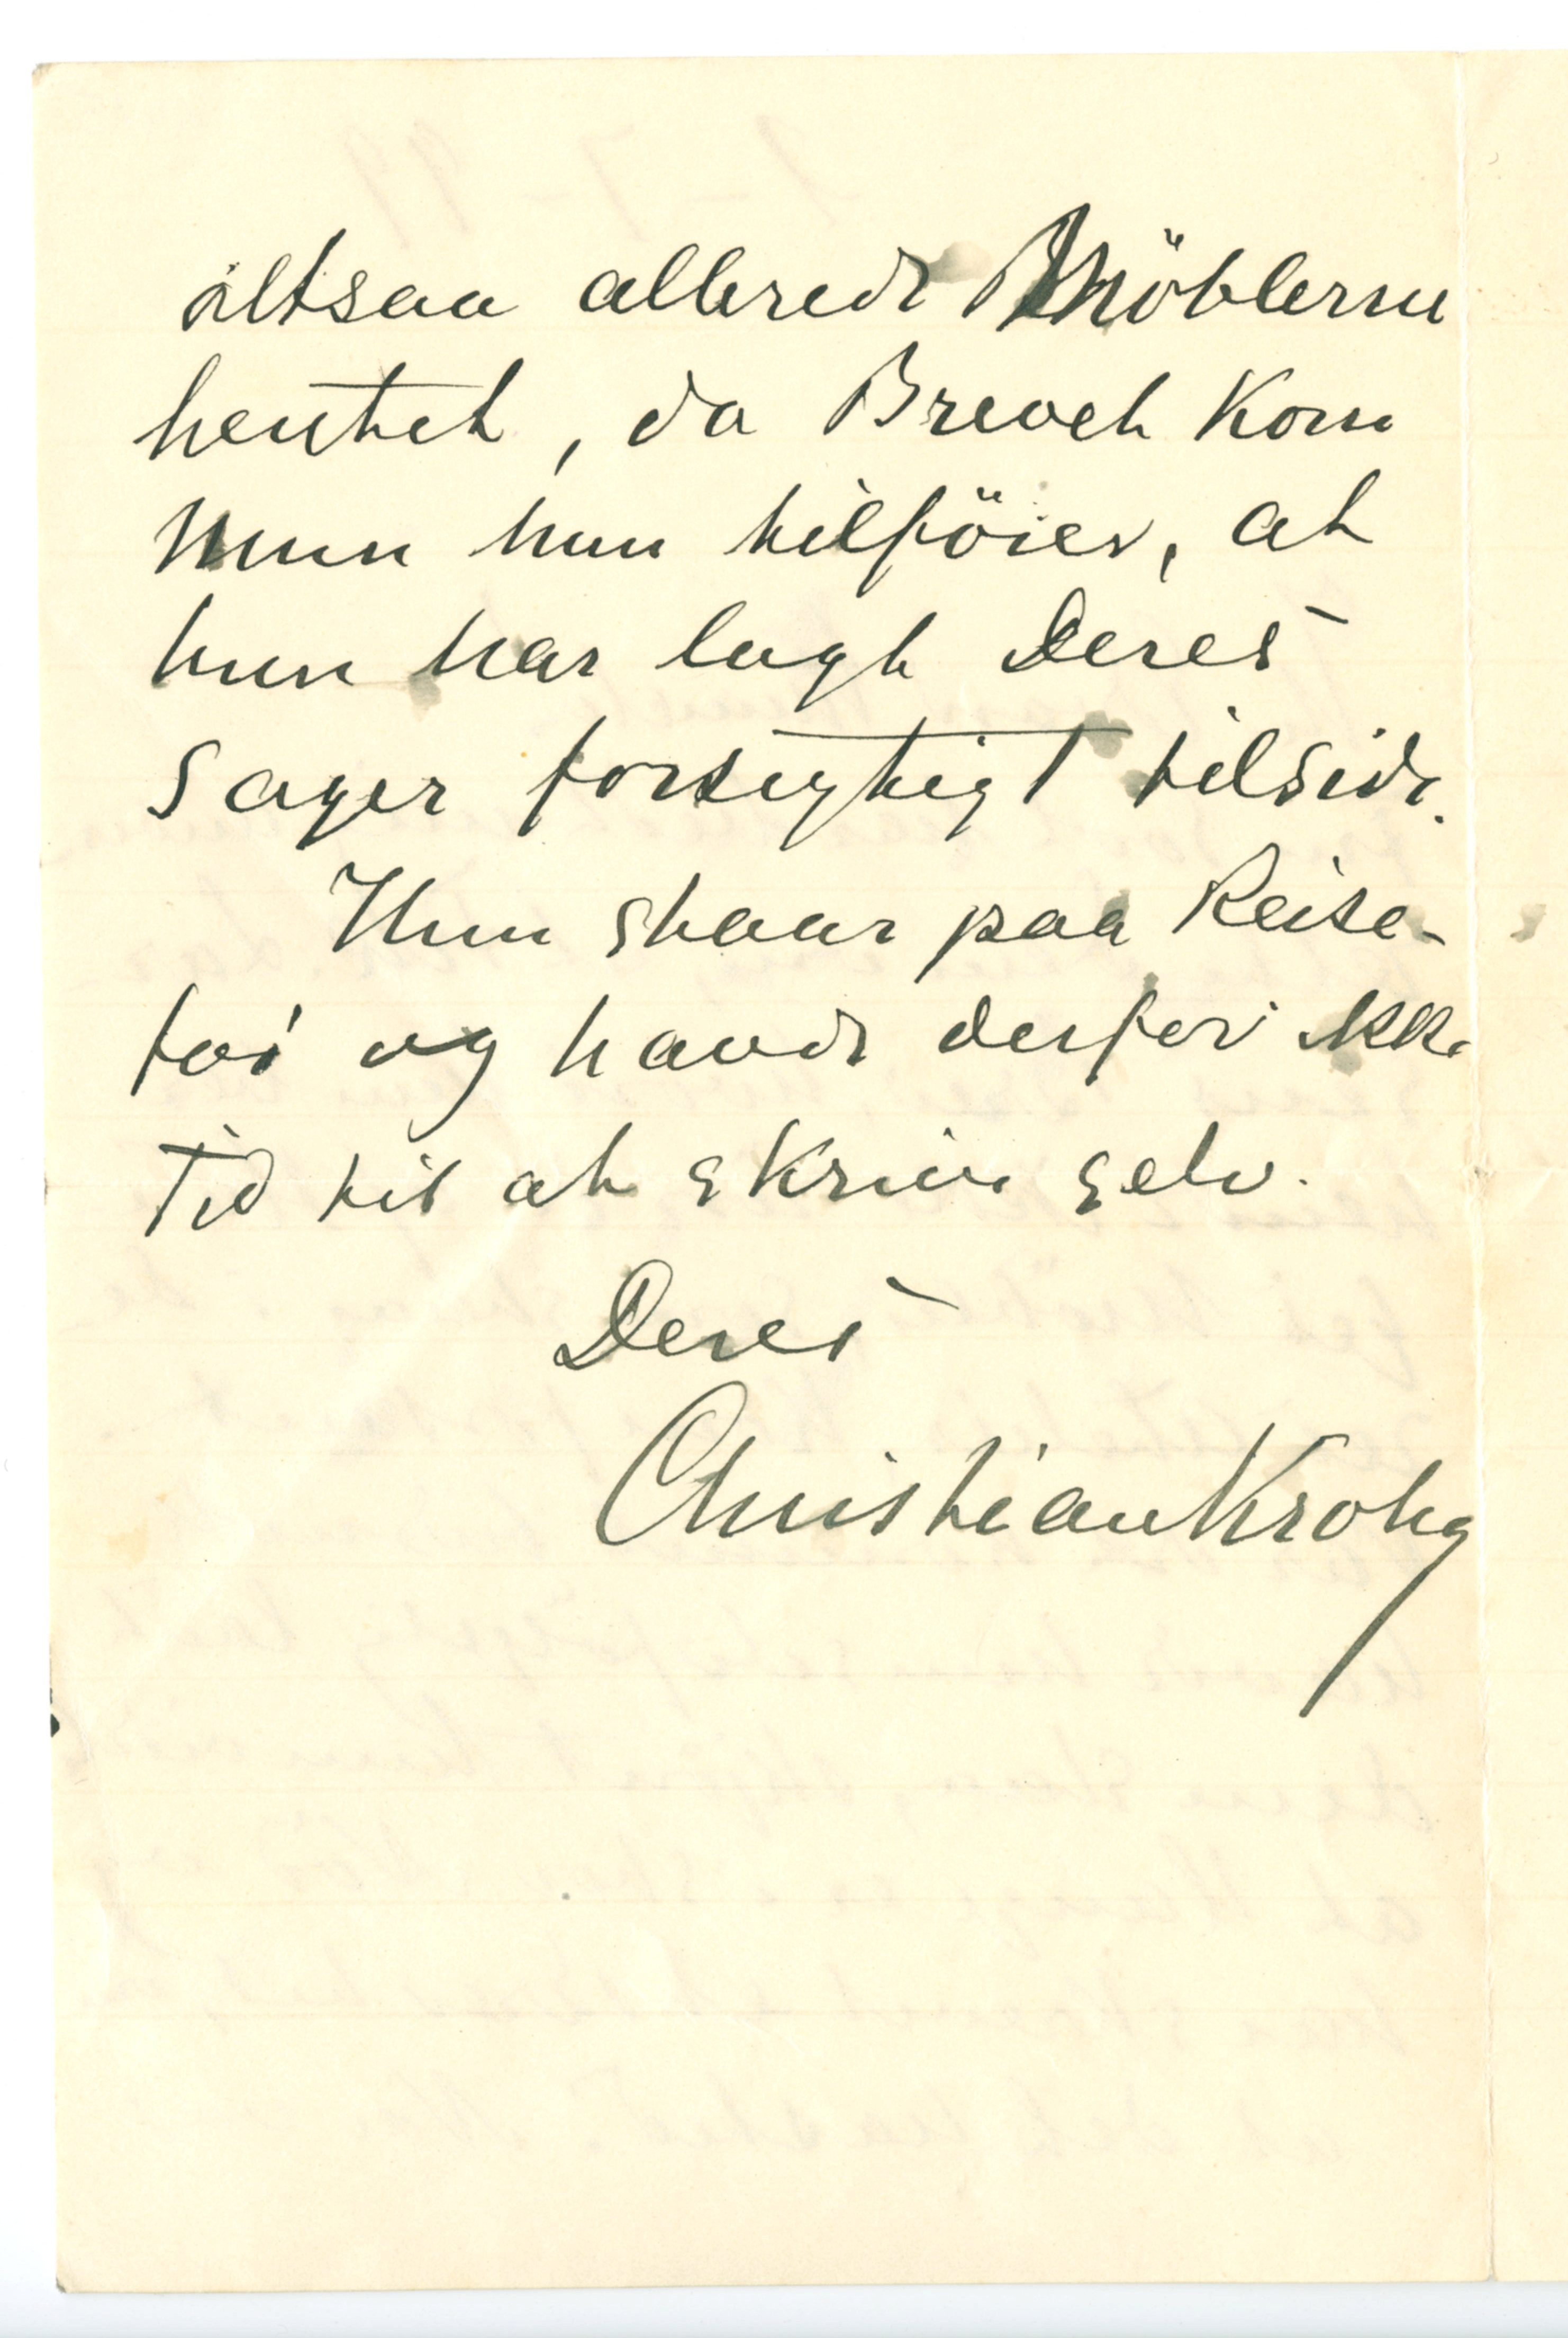 altsaa allerede Möblerne
hentet, da Brevet kom
Men hun tilföier, at
hun har lagt Deres
Sager forsigtigt tilside.
Hun staar paa Reise-
fod og havde derfor ikke
Tid til at skrive selv.
Deres
Christian Krohg